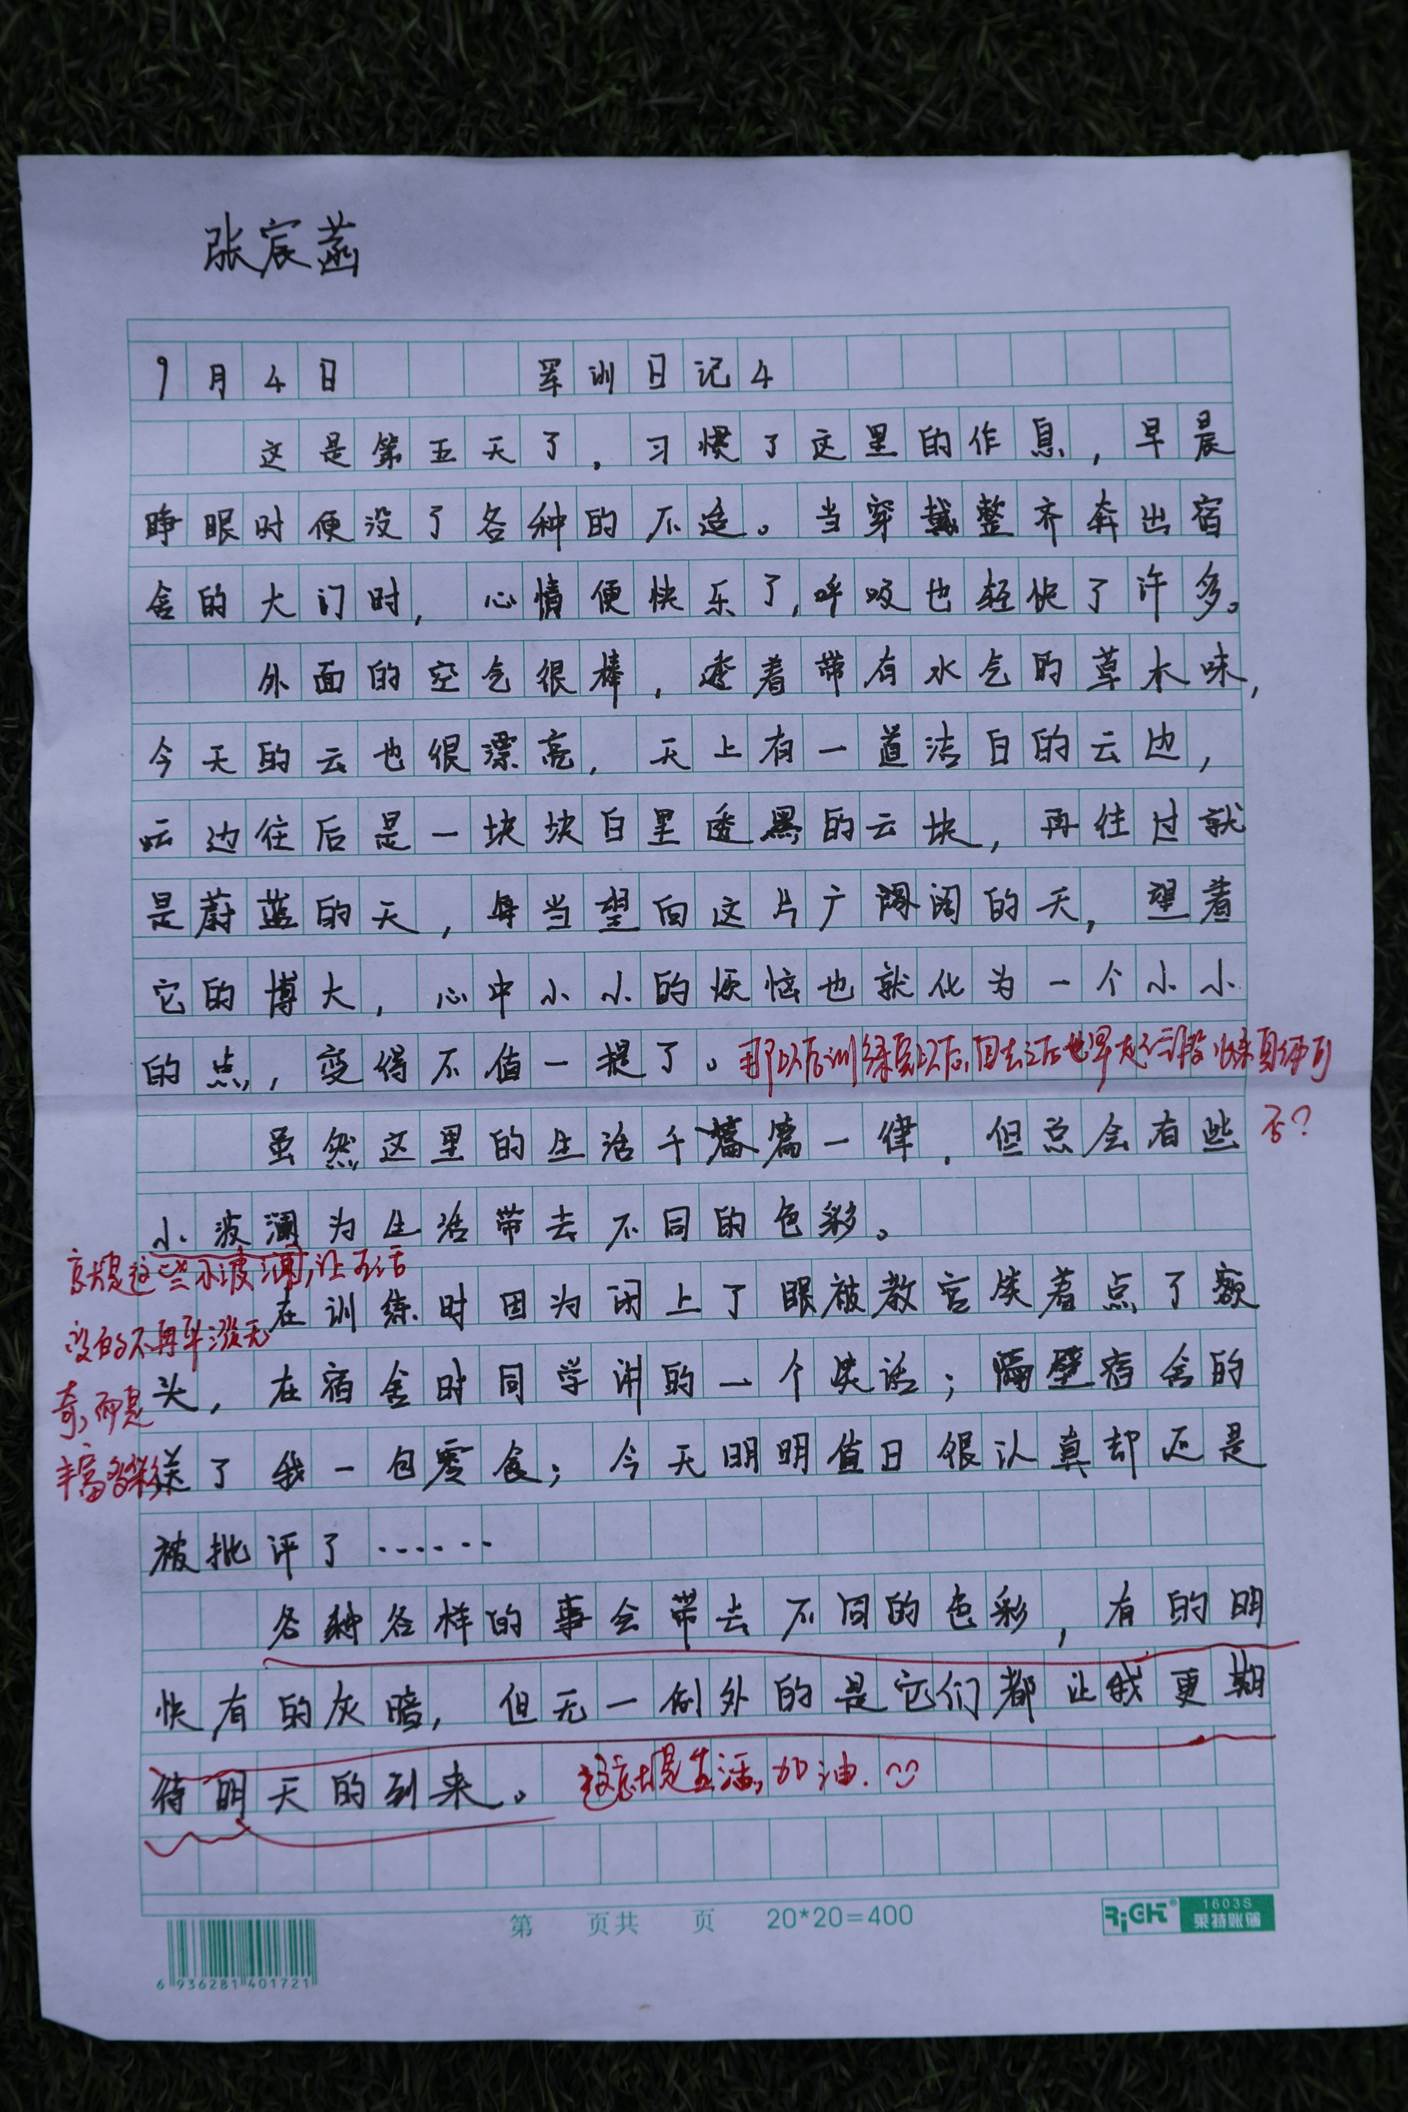 张宸菡
9月4日 军训日记4
这是第五天了，习惯了这里的作息，早晨
睁眼时便没了各种的不适。当穿戴整齐奔出宿
舍的大门时，心情便快乐了，呼吸也轻快了许多。
外面的空气很棒，透着带有水气的草木味，
今天的云也很漂亮，天上有一道洁白的云边，
云边往后是一块块白里透黑的云块，再往过就
是蔚蓝的天，每当望向这片广阔的天，望着
它的博大，心中小小的烦恼也就化为一个小小
的点，变得不值一提了。
否？
虽然这里的生活千篇一律，但总会有些
小波澜为生活带去不同的色彩。
就是这些小波澜，让生活
在训练时因为闭上了眼被教官笑着点了额
没有不再平淡无
头，在宿舍时同学讲的一个笑话；隔壁宿舍的
奇，而是
送了我一包零食；今天明明值日很认真却还是
丰富多彩
被批评了……
各种各样的事会带去不同的色彩，有的明
快有的灰暗，但无一例外的是它们都让我更期
待明天的到来。这就是生活，加油.
第 页共 页 20*20=400
RiGHT® 1603S
莱特账簿
6 936281 401721